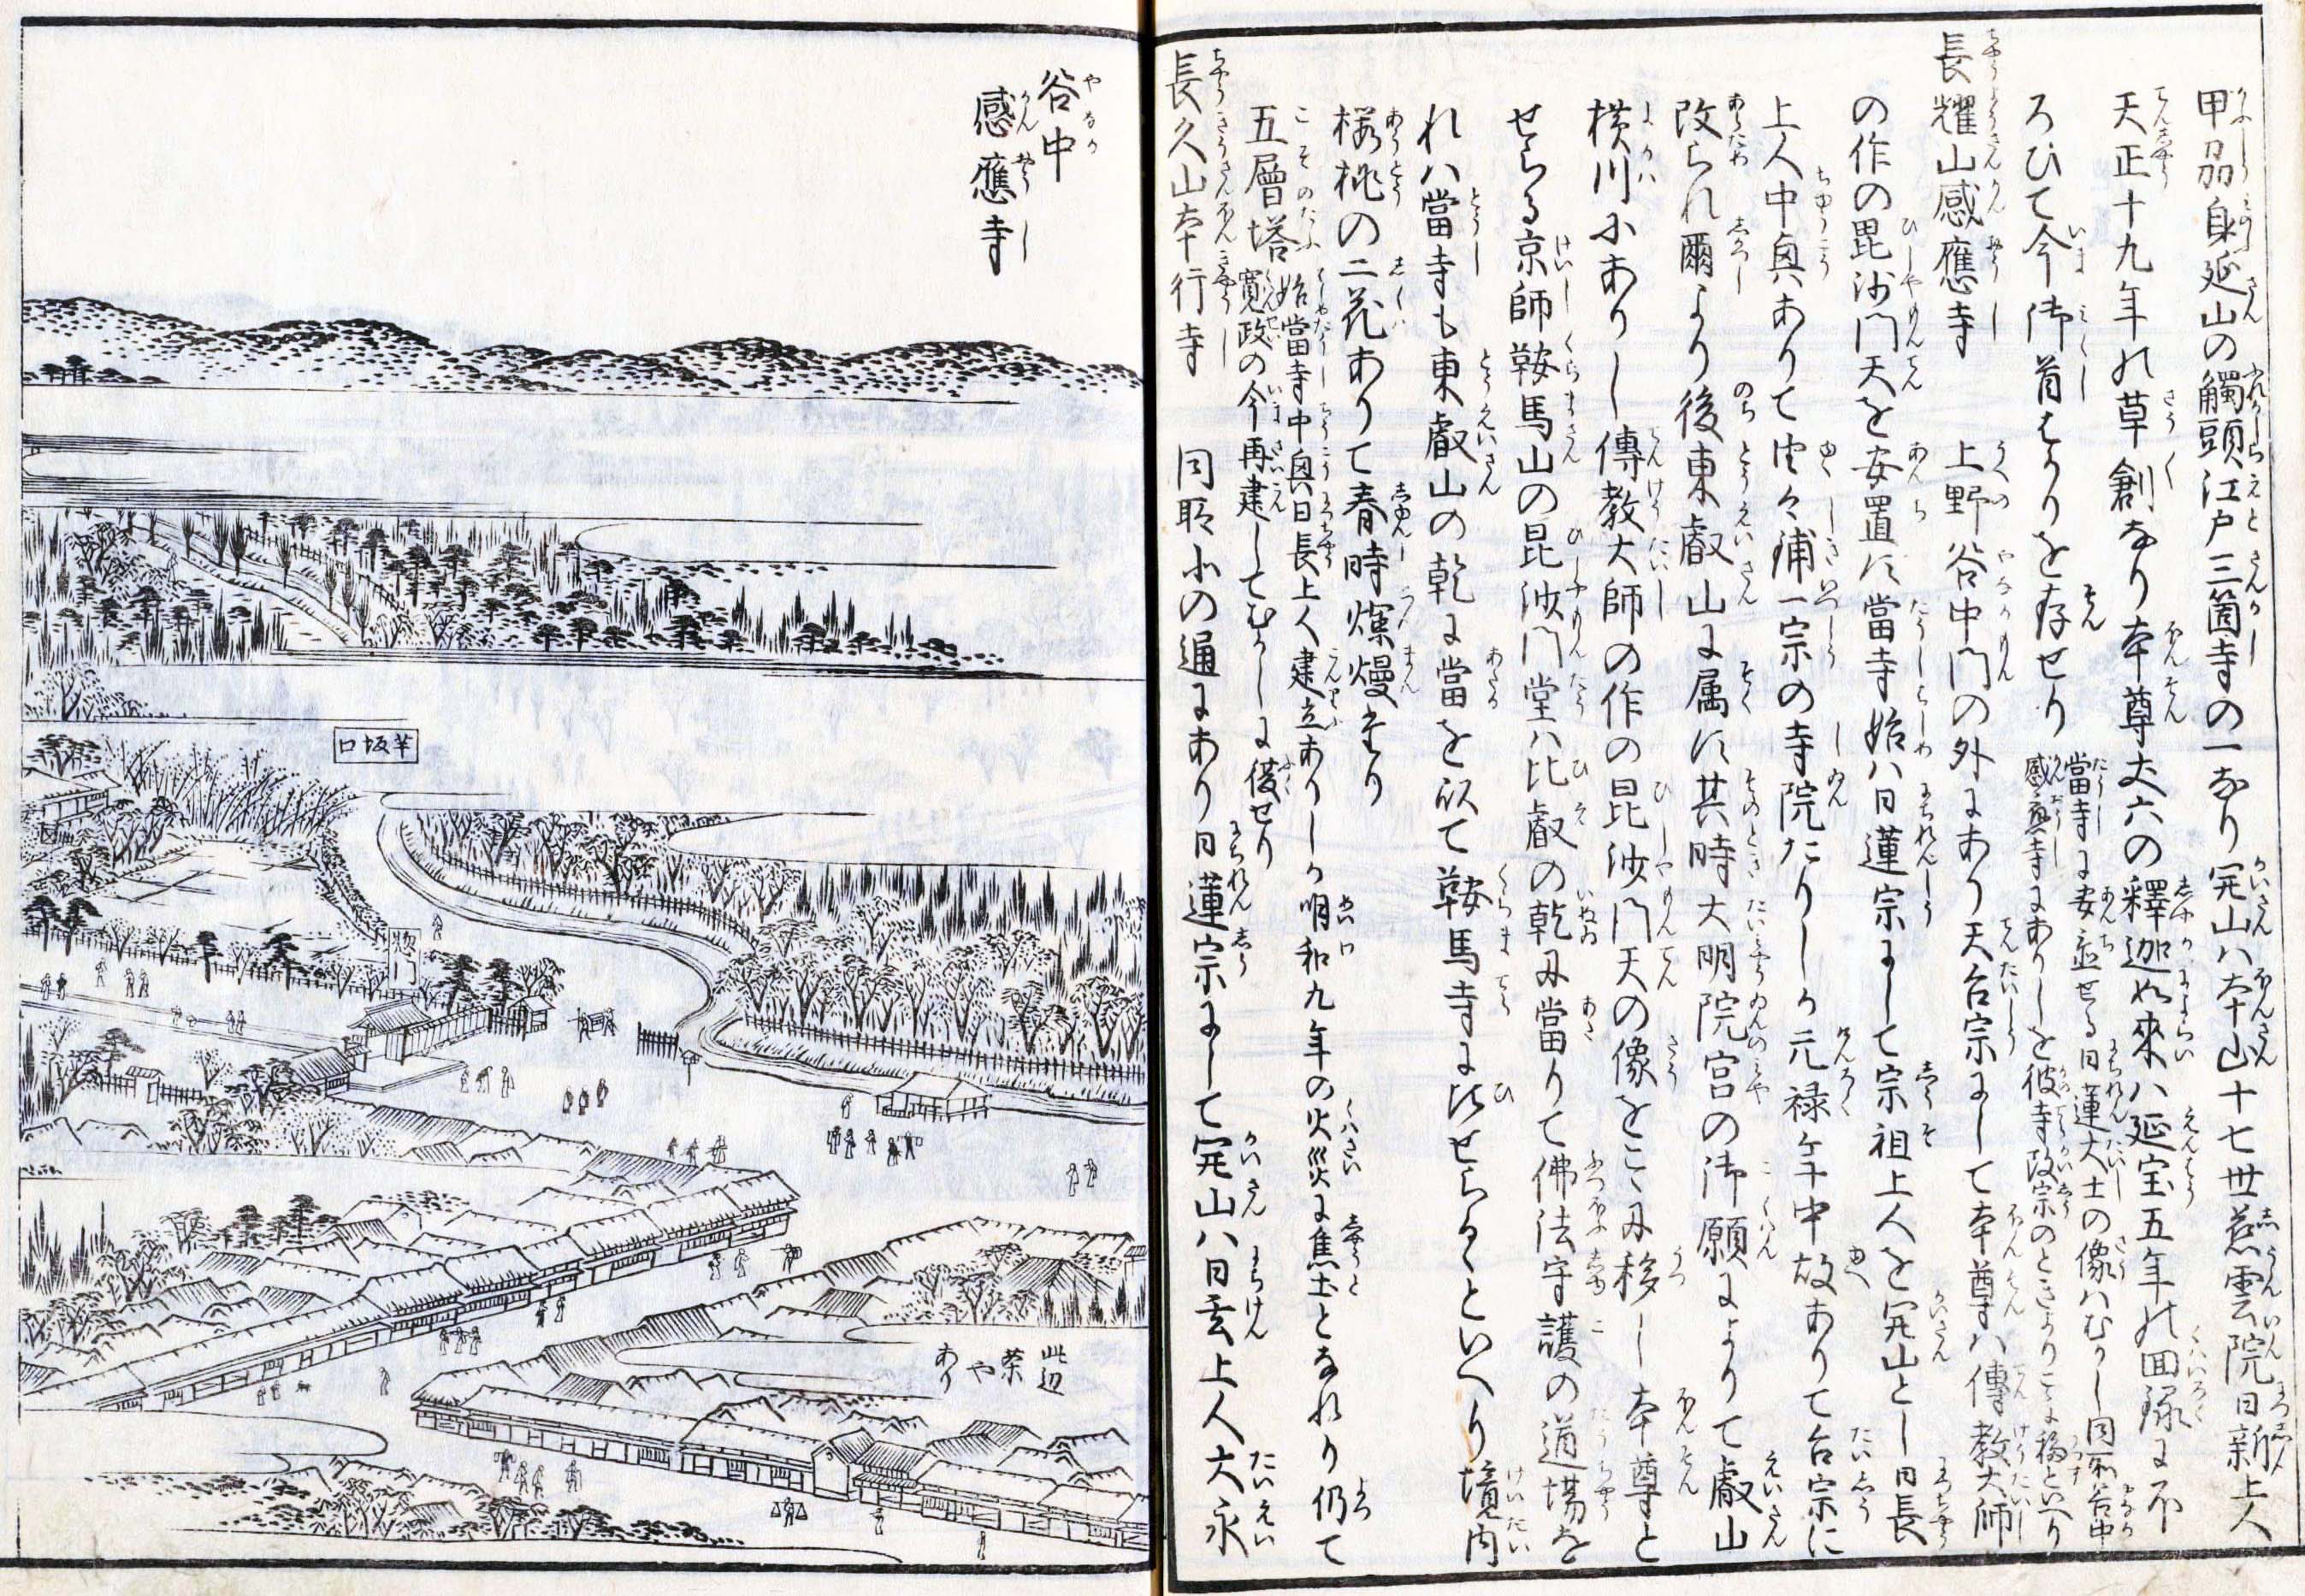 甲州身延山の觸頭江戸三箇寺の一なり開山ハ本山十七世慈雲院日新上人
天正十九年の草創なり本尊丈六の釋迦如來ハ延宝五年の回録に不
ろびて今御首はかりを存せり
當寺に安置せる日蓮大士の像ハむかし同所谷中
感應寺にありしを彼寺改宗のときよりこゝに移すといへり
長耀山感應寺　上野谷中門の外にあり天台宗にして本尊ハ傳教大師
の作の毘沙門天を安置す當寺始ハ日蓮宗にして宗祖上人を開山とし日長
上人中興ありて由々鋪一宗の寺院たりしか元禄年中故ありて台宗に
改られ爾より後東叡山に属す其時大明院宮の御願によりて叡山
横川にありし傳教大師の作の毘沙門天の像をこゝに移し本尊と
せらる京師鞍馬山の毘沙門堂ハ比叡の乾に當りて佛法守護の道場な
れハ當寺も東叡山の乾に當を以て鞍馬寺に比せらるゝといへり境内
桜桃の二花ありて春時爛熳たり
五層塔
始當寺中興日長上人建立ありしか明和九年の火災に焦土となれり仍て
寛政の今再建してむかしに復せり
長久山本行寺　同所小の通にあり日蓮宗にして開山ハ日玄上人大永
谷中
感應寺
芋坂口
惣門
此辺
茶や
あり